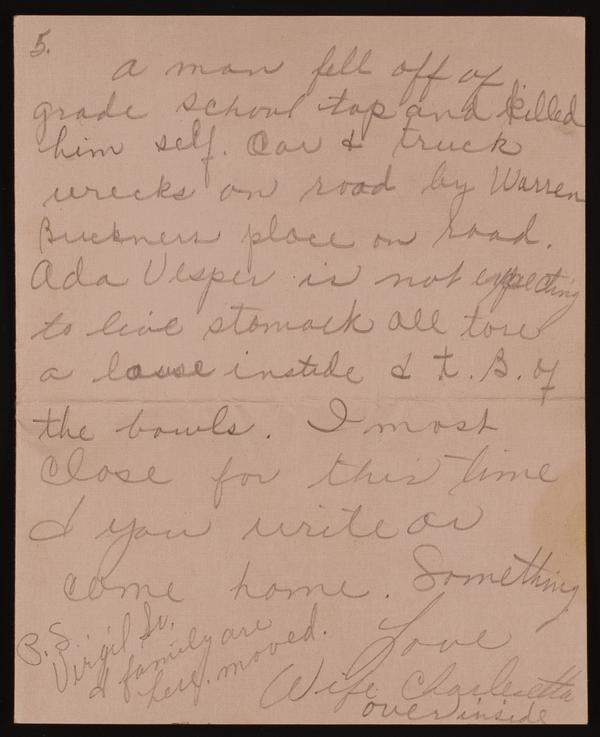 5.
a man fell off of
grade school top and killed
him self. Car & truck
wrecks on road by Warren
Buckners place on road.
Ada Vesper is not expecting
to live stomack all tore
a louse inside & t. B. of
the bowls. I most
close for this time
& you write or
come home. Something
Love
Wife Charlesetta
over inside
P.S.
Virgil Sr.
& family are
here. moved.